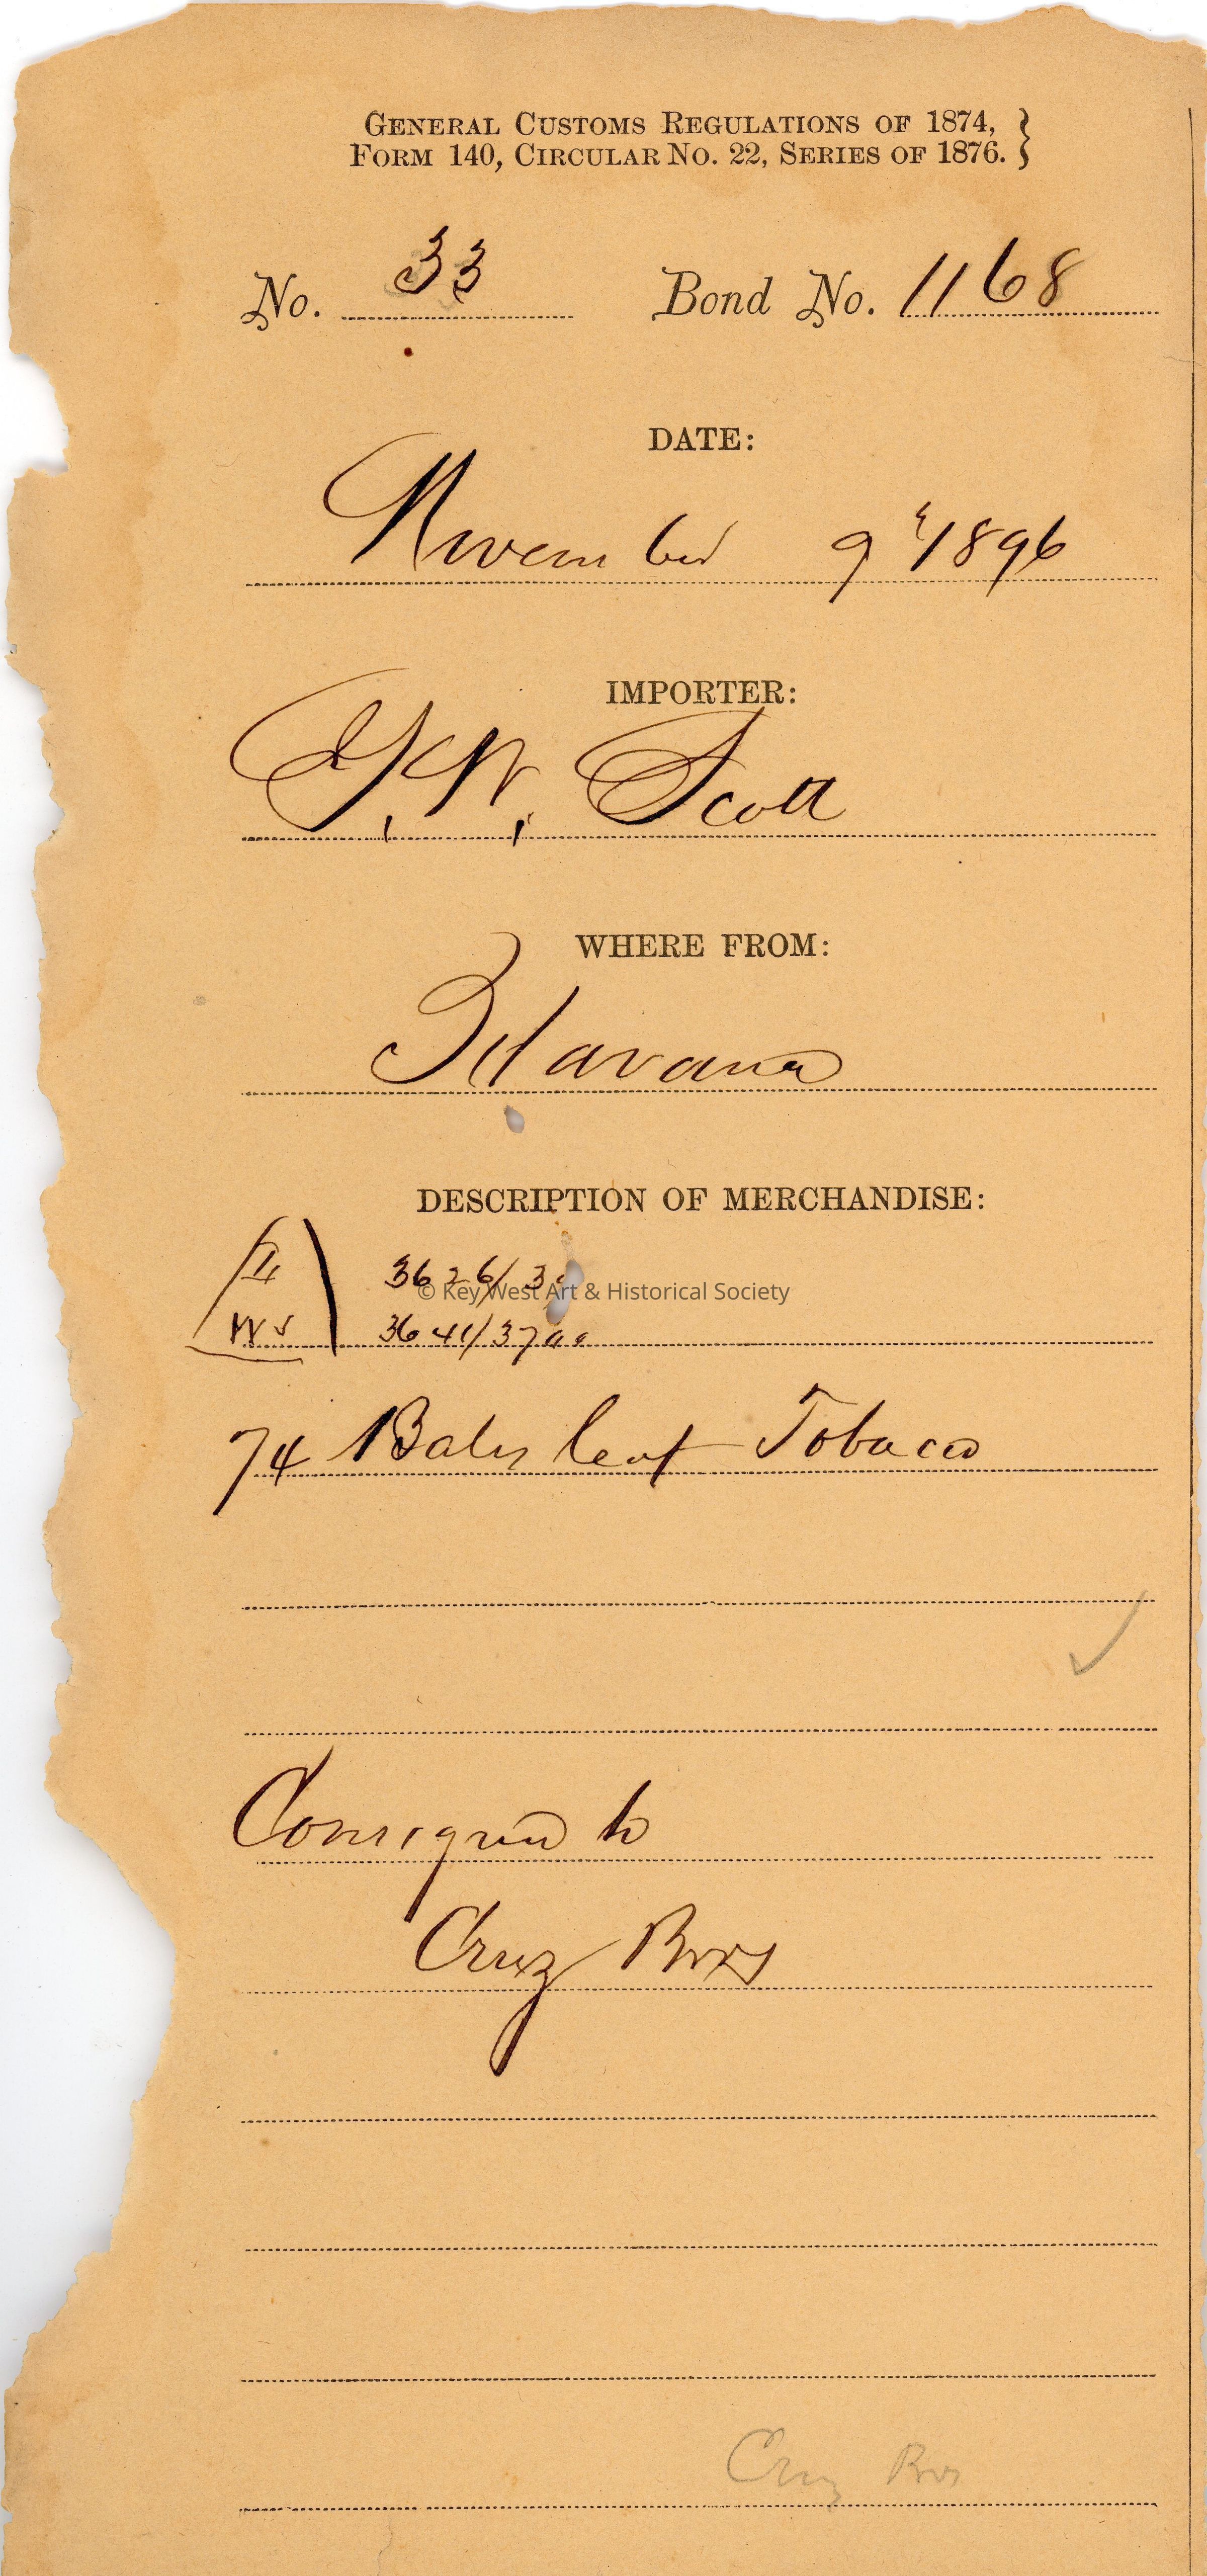 GENERAL CUSTOMS REGULATIONS OF 1874,
FORM 140, CIRCULAR NO. 22, SERIES OF 1876.
No. 33 Bond No. 1168
DATE:
November 9th 1896
IMPORTER:
Scott
WHERE FROM:
Havana
DESCRIPTION OF MERCHANDISE:
3626/
© Key West Art & Historical Society
WS 3641/3700
74 Bales leaf Tobacco
Consigned to
Cruz Bros
Cruz Bros